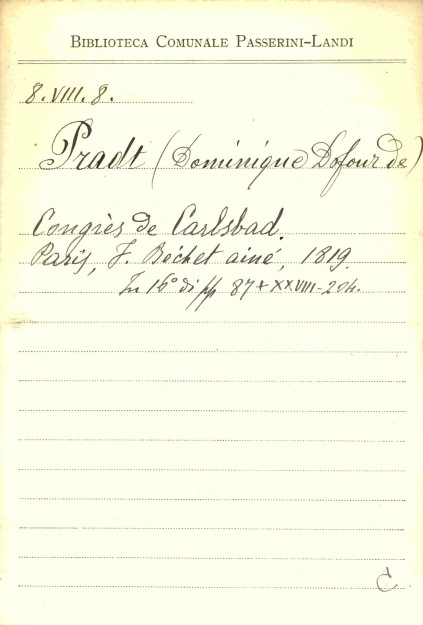 BIBLIOTECA COMUNALE PASSERINI-LANDI
8.VIII.8.
Pradt (Dominique Dofour de)
Congrès de Carlsbad.
Paris, F. Béchet ainé, 1819.
In 16° di pp 87+XXVIII-204.
C